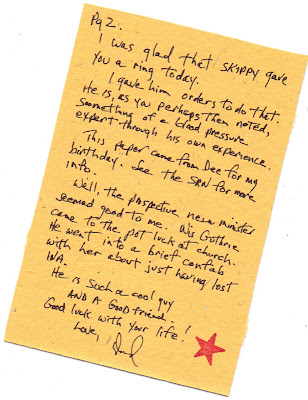 Pg 2.
I was glad that SKIPPY gave
you a ring today.
I gave him orders to do that.
He is, as you perhaps then noted,
something of a blood pressure
expert through his own experience.
This paper came from Dee for my
birthday. See the SRN for more
info.
Well, the prospective new minister
seemed good to me. Wis Guthrie
came to the pot luck at church.
He went into a brief confab
with her about just having lost
INA.
He is such a cool guy
AND A Good friend!
Good luck with your life!
Love,